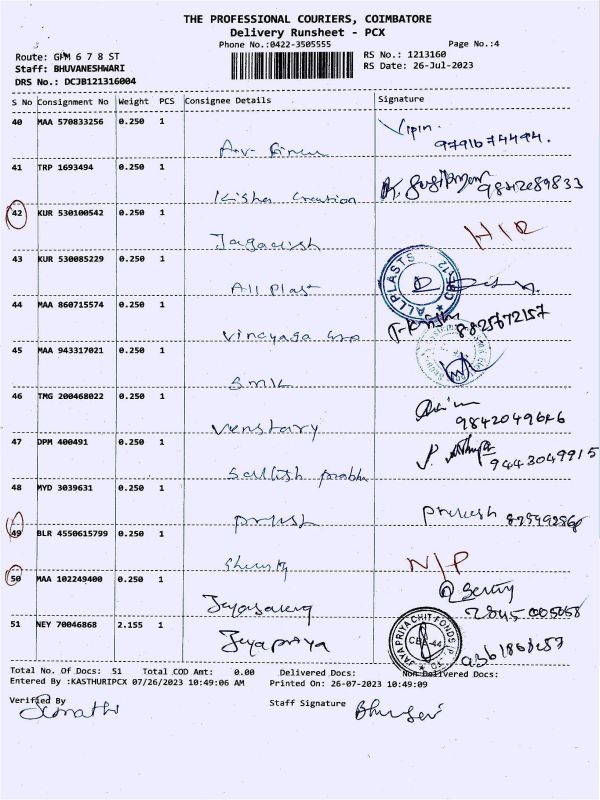 THE PROFESSIONAL COURIERS, COIMBATORE
Delivery Runsheet - PCX
Phone No.:0422-3505555
Page No.:4
Route: GPM 6 7 8 ST
RS No.: 1213160
Staff: BHUVANESHWARI
RS Date: 26-Jul-2023
DRS No.: DCJB121316004
S No Consignment No Weight PCS Consignee Details Signature
40 MAA 570833256 0.250 1 Vipin.
9791674494.
41 TRP 1693494 0.250 1 Kisha Creation 9842089833
42 KUR 530100542 0.250 1 Jagadish
43 KUR 530085229 0.250 1 All Plast ALLPLASTS
44 MAA 860715574 0.250 1 Vinayaga 8825672157
45 MAA 943317021 0.250 1 SMK
46 TMG 200468022 0.250 1 9842049646
47 DPM 400491 0.250 1 Sathish prabhu 9443049915
48 MYD 3039631 0.250 1 Prakash
49 BLR 4550615799 0.250 1 N/P
50 MAA 102249400 0.250 1
51 NEY 70046868 2.155 1 Jayapriya JAYAPRIYA CHIT FUNDS CBE-44
Total No. Of Docs: 51 Total COD Amt: 0.00 Delivered Docs: Non Delivered Docs:
Entered By :KASTHURIPCX 07/26/2023 10:49:06 AM Printed On: 26-07-2023 10:49:09
Verified By Staff Signature